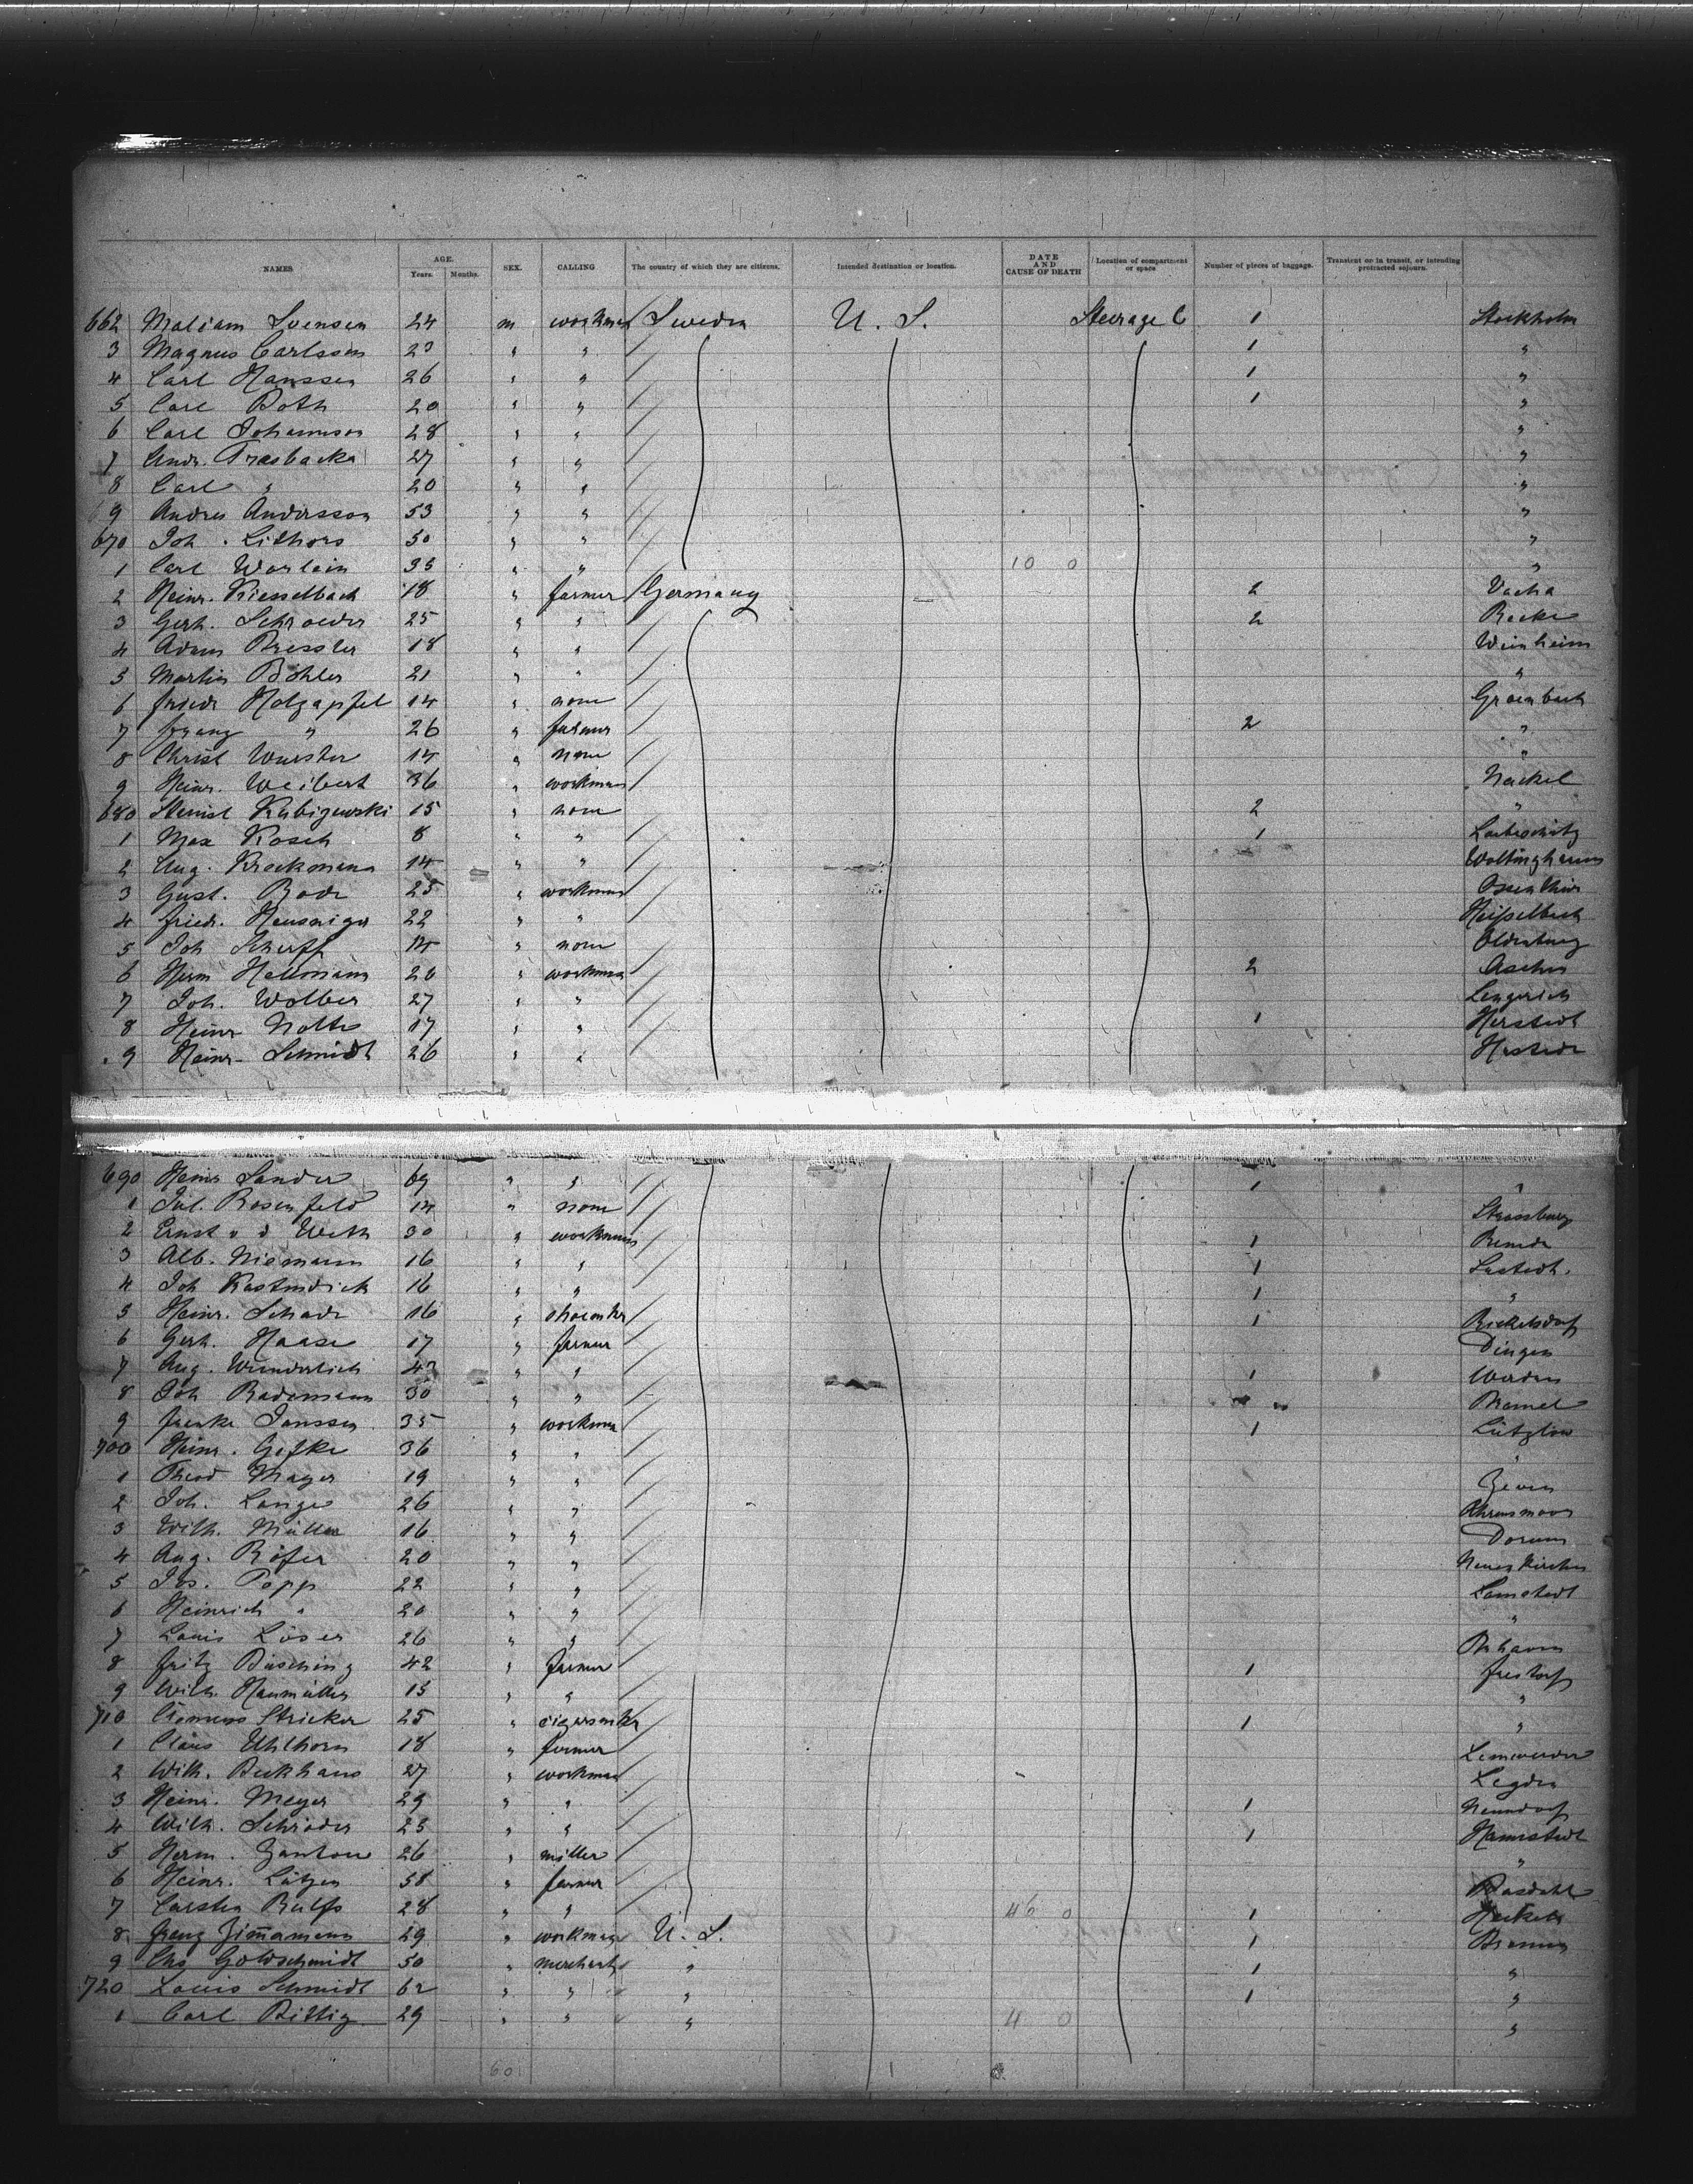 NAMES AGE. Years. Months. SEX. CALLING The country of which they are citizens. Intended destination or location. DATE AND CAUSE OF DEATH Location of compartment or space Number of pieces of baggage. Transient or in transit, or intending protracted sojourn.
662 Svensen 24 m workman Sweden U. S. Steerage C 1 Stockholm
3 Magnus Carlsson 1 "
4 Carl Hanssen 26 " " 1 "
5 Carl Roth 20 " " 1 "
6 Carl Johannson 28 " " "
7 Andr. Trasbacka 27 " " "
8 Carl " 20 " " "
9 Andres Andersson 53 " " "
670 Joh. Lithors 50 " " "
1 Carl Worlein 35 " " 10 0 "
2 Heinr. Kiesselbach 18 " farmer Germany 2 Vacha
3 Gerh. Schroeder 25 " " 2 Recke
4 Adam Bressler 18 " " Weinheim
5 Martin Böhler 21 " " "
6 Friedr Holzapfel 14 " none Groenbach
7 Franz " 26 " farmer 2 "
8 Christ Wurster 14 " none "
9 Heinr. Weibert 36 " workman Nackel
680 Kubizewski 15 " none 2 "
1 Max Kosch 8 " " 1
2 Aug. Kreckmann 14 " "
3 Gust. Bode 25 " workman
4 Friedr. 22 " "
5 Joh Scherff 14 " none Oldenburg
6 Herm Hellmann 20 " workman 2
7 Joh. Wolber 27 " " Lengerich
8 Heinr Nolte 17 " " 1 Herstedt
9 Heinr. Schmidt 26 " "
690 Heinr Sander 69 " " 1 "
1 Jul. Rosenfeld 14 " none Strassburg
2 Ernst v d Weth 30 " workman 1
3 Alb. Niemann 16 " " 1
4 Joh Kastendick 16 " " 1 "
5 Heinr. Schade 16 " shoemkr 1 Rickelsdorf
6 Gerh. Haase 17 " farmer Dingen
7 Aug. Wunderlich " " 1
8 Joh Rademann 30 " " Bramel
9 Janssen 35 " workman 1 Lützlow
700 Heinr. Gefke 36 " " "
1 Theod Mayer 19 " " Zeven
2 Joh. Lange 26 " " Ahrensmoor
3 Wilh. Müller 16 " " Dorum
4 Aug. Röfer 20 " " Neuenkirchen
5 Jos. Popp 22 " " Lamstedt
6 Heinrich " 20 " " "
7 Louis Löser 26 " " Brhaven
8 Fritz Büsching 42 " farmer 1 Frestorf
9 Wilh. Hanmüller 15 " " "
710 Stricker 25 " cigarmkr 1 "
1 Claus Uhlhorn 18 " farmer Lemwerder
2 Wilh. Beckhaus 27 " workman Legden
3 Heinr. Meyer 29 " " 1 Nenndorf
4 Wilh. Schröder 23 " " 1
5 Herm. Gantow 26 " miller "
6 Heinr. Lütjen 58 " farmer Basdahl
7 Carsten Rulfs 28 " " 46 0 1
8 Franz Zimmermann 29 " workman U. S. 1 Bremen
9 Chs Goldschmidt 50 " merchant " 1 "
720 Louis Schmidt 62 " " " 1 "
1 Carl Bittig 29 " " " 4 0 "
60